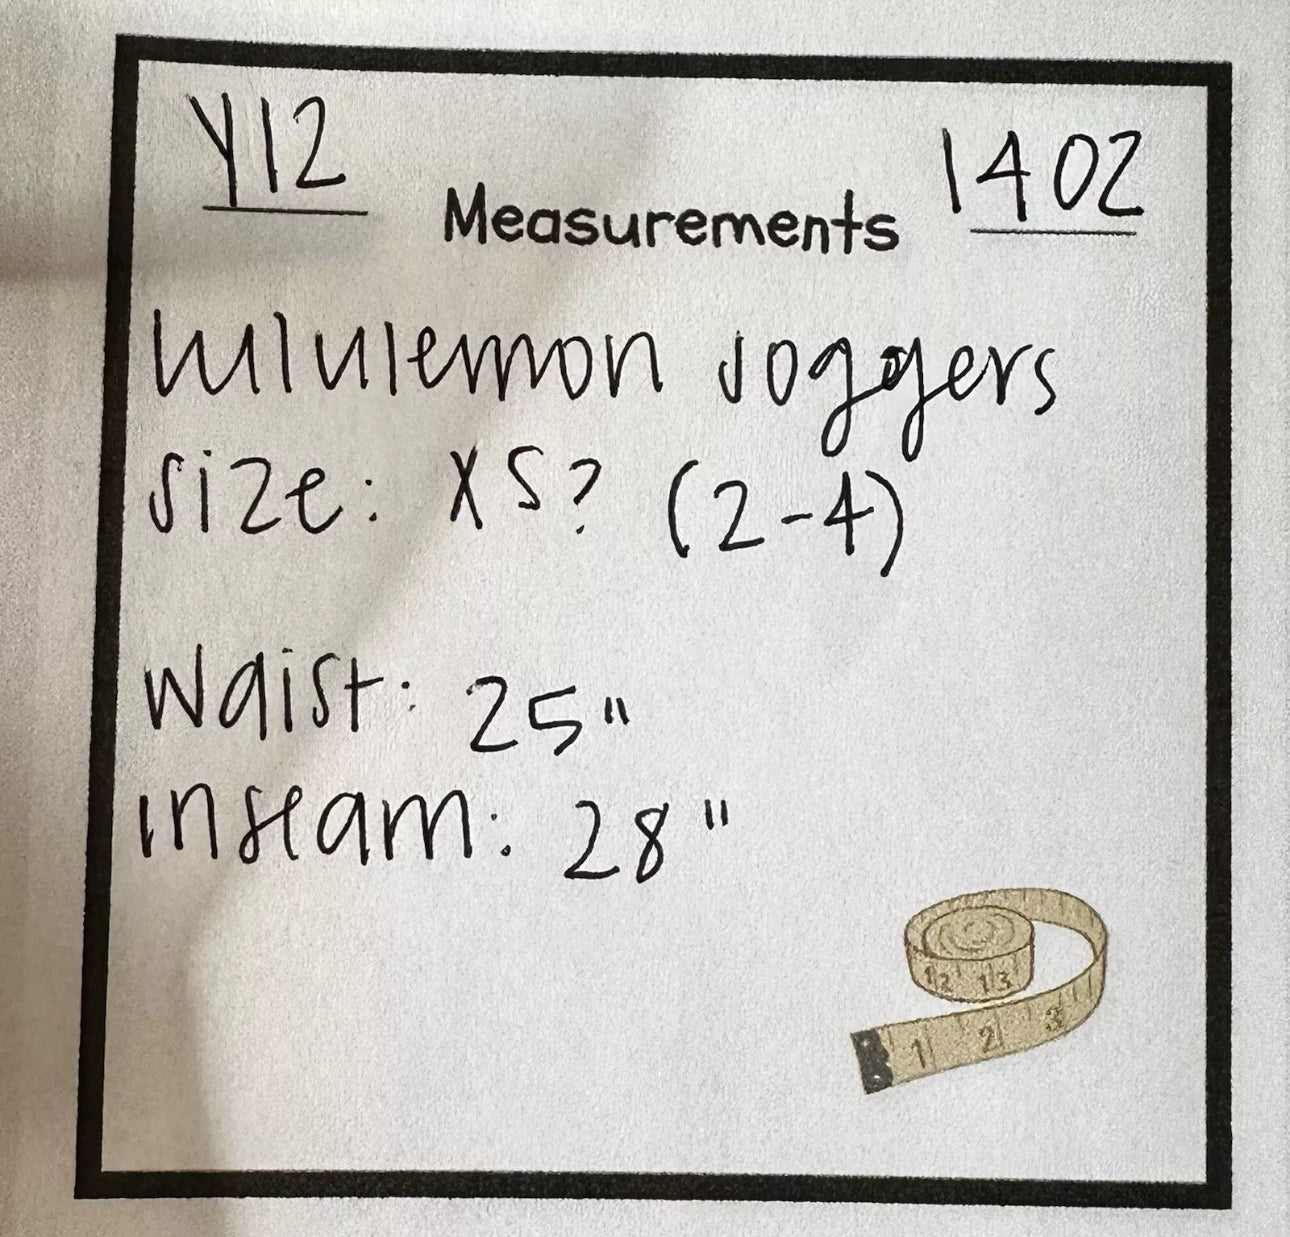 Y12
1402
Measurements
lululemon joggers
size: XS? (2-4)
waist: 25"
inseam: 28"
12 13
1 2 3